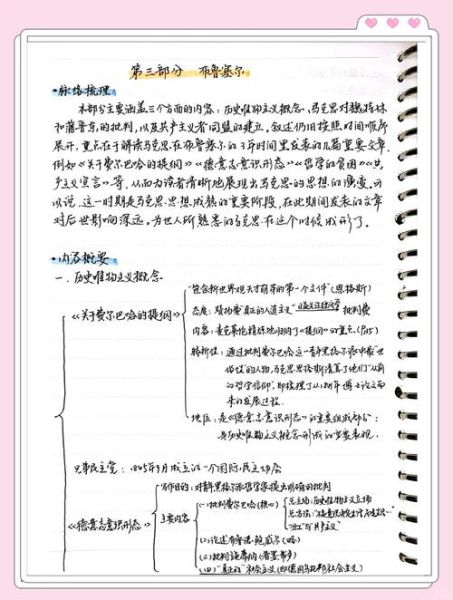 第三部分 布鲁塞尔
•脉络梳理
本部分主要涵盖三个方面的内容：历史唯物主义概念、马克思对魏特林
和蒲鲁东的批判，以及共产主义者同盟的建立。叙述仍旧按照时间顺序
展开，重点在于解读马克思在布鲁塞尔的3年时间里发表的几篇重要文章，
例如《关于费尔巴哈的提纲》《德意志意识形态》《哲学的贫困》《共
产主义宣言》等，从而为读者清晰地展现出马克思的思想的演变。可
以说，这一时期是马克思思想成熟的重要阶段，在此期间发表的文章
对后世影响深远。为世人所熟悉的马克思在这个时候成形了。
•内容概要
一、历史唯物主义概念
《关于费尔巴哈的提纲》
"包含新世界观天才萌芽的第一个文件"（恩格斯）
态度：赞扬费"真正的人道主义" 批判费
内容：麦克莱伦精炼地归纳了《提纲》的重点
转折性：通过批判费尔巴哈这一青年黑格尔派中最"世
俗性"的人物，马克思恩格斯清算了他们"从前
的哲学信仰"，即梳理了从博士论文而
来的发展过程
地位：是《德意志意识形态》的重要组成部分；
是历史唯物主义概念形成的重要表现。
兄弟民主党：1845年9月成立的一个国际民主协会
《德意志意识形态》
写作目的：对黑格尔派哲学家提出明确的批判
主要内容
(一)批判费尔巴哈(核心)
总立场：历史唯物主义立场
"分工"与"共产主义"
(二)论述布鲁诺·鲍威尔(略)
(三)批判施蒂纳
(四)"真正的"社会主义(即德国乌托邦社会主义)